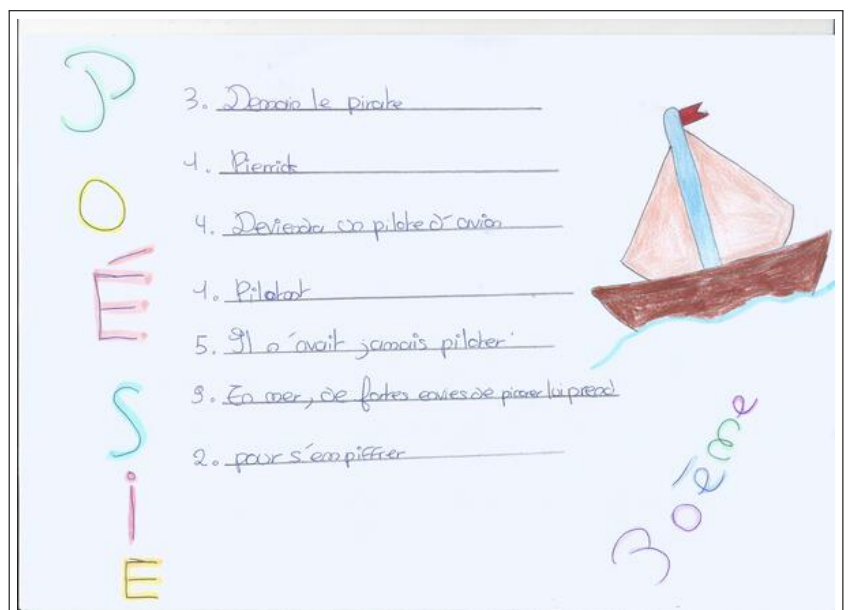 POÉSIE
3. Demain le pirate
1. Pierrick
4. Deviendra un pilote d'avion
1. Pilotant
5. Il n'avait jamais piloter
9. En mer, de fortes envies de pirater lui prend
2. pour s'empiffrer
Poème